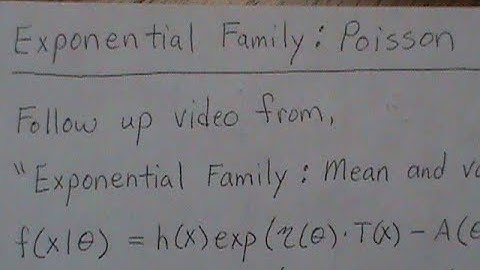 Exponential Family: Poisson
Follow up video from,
"Exponential Family: Mean and va
f(x|θ) = h(x)exp(η(θ)·T(x) − A(θ